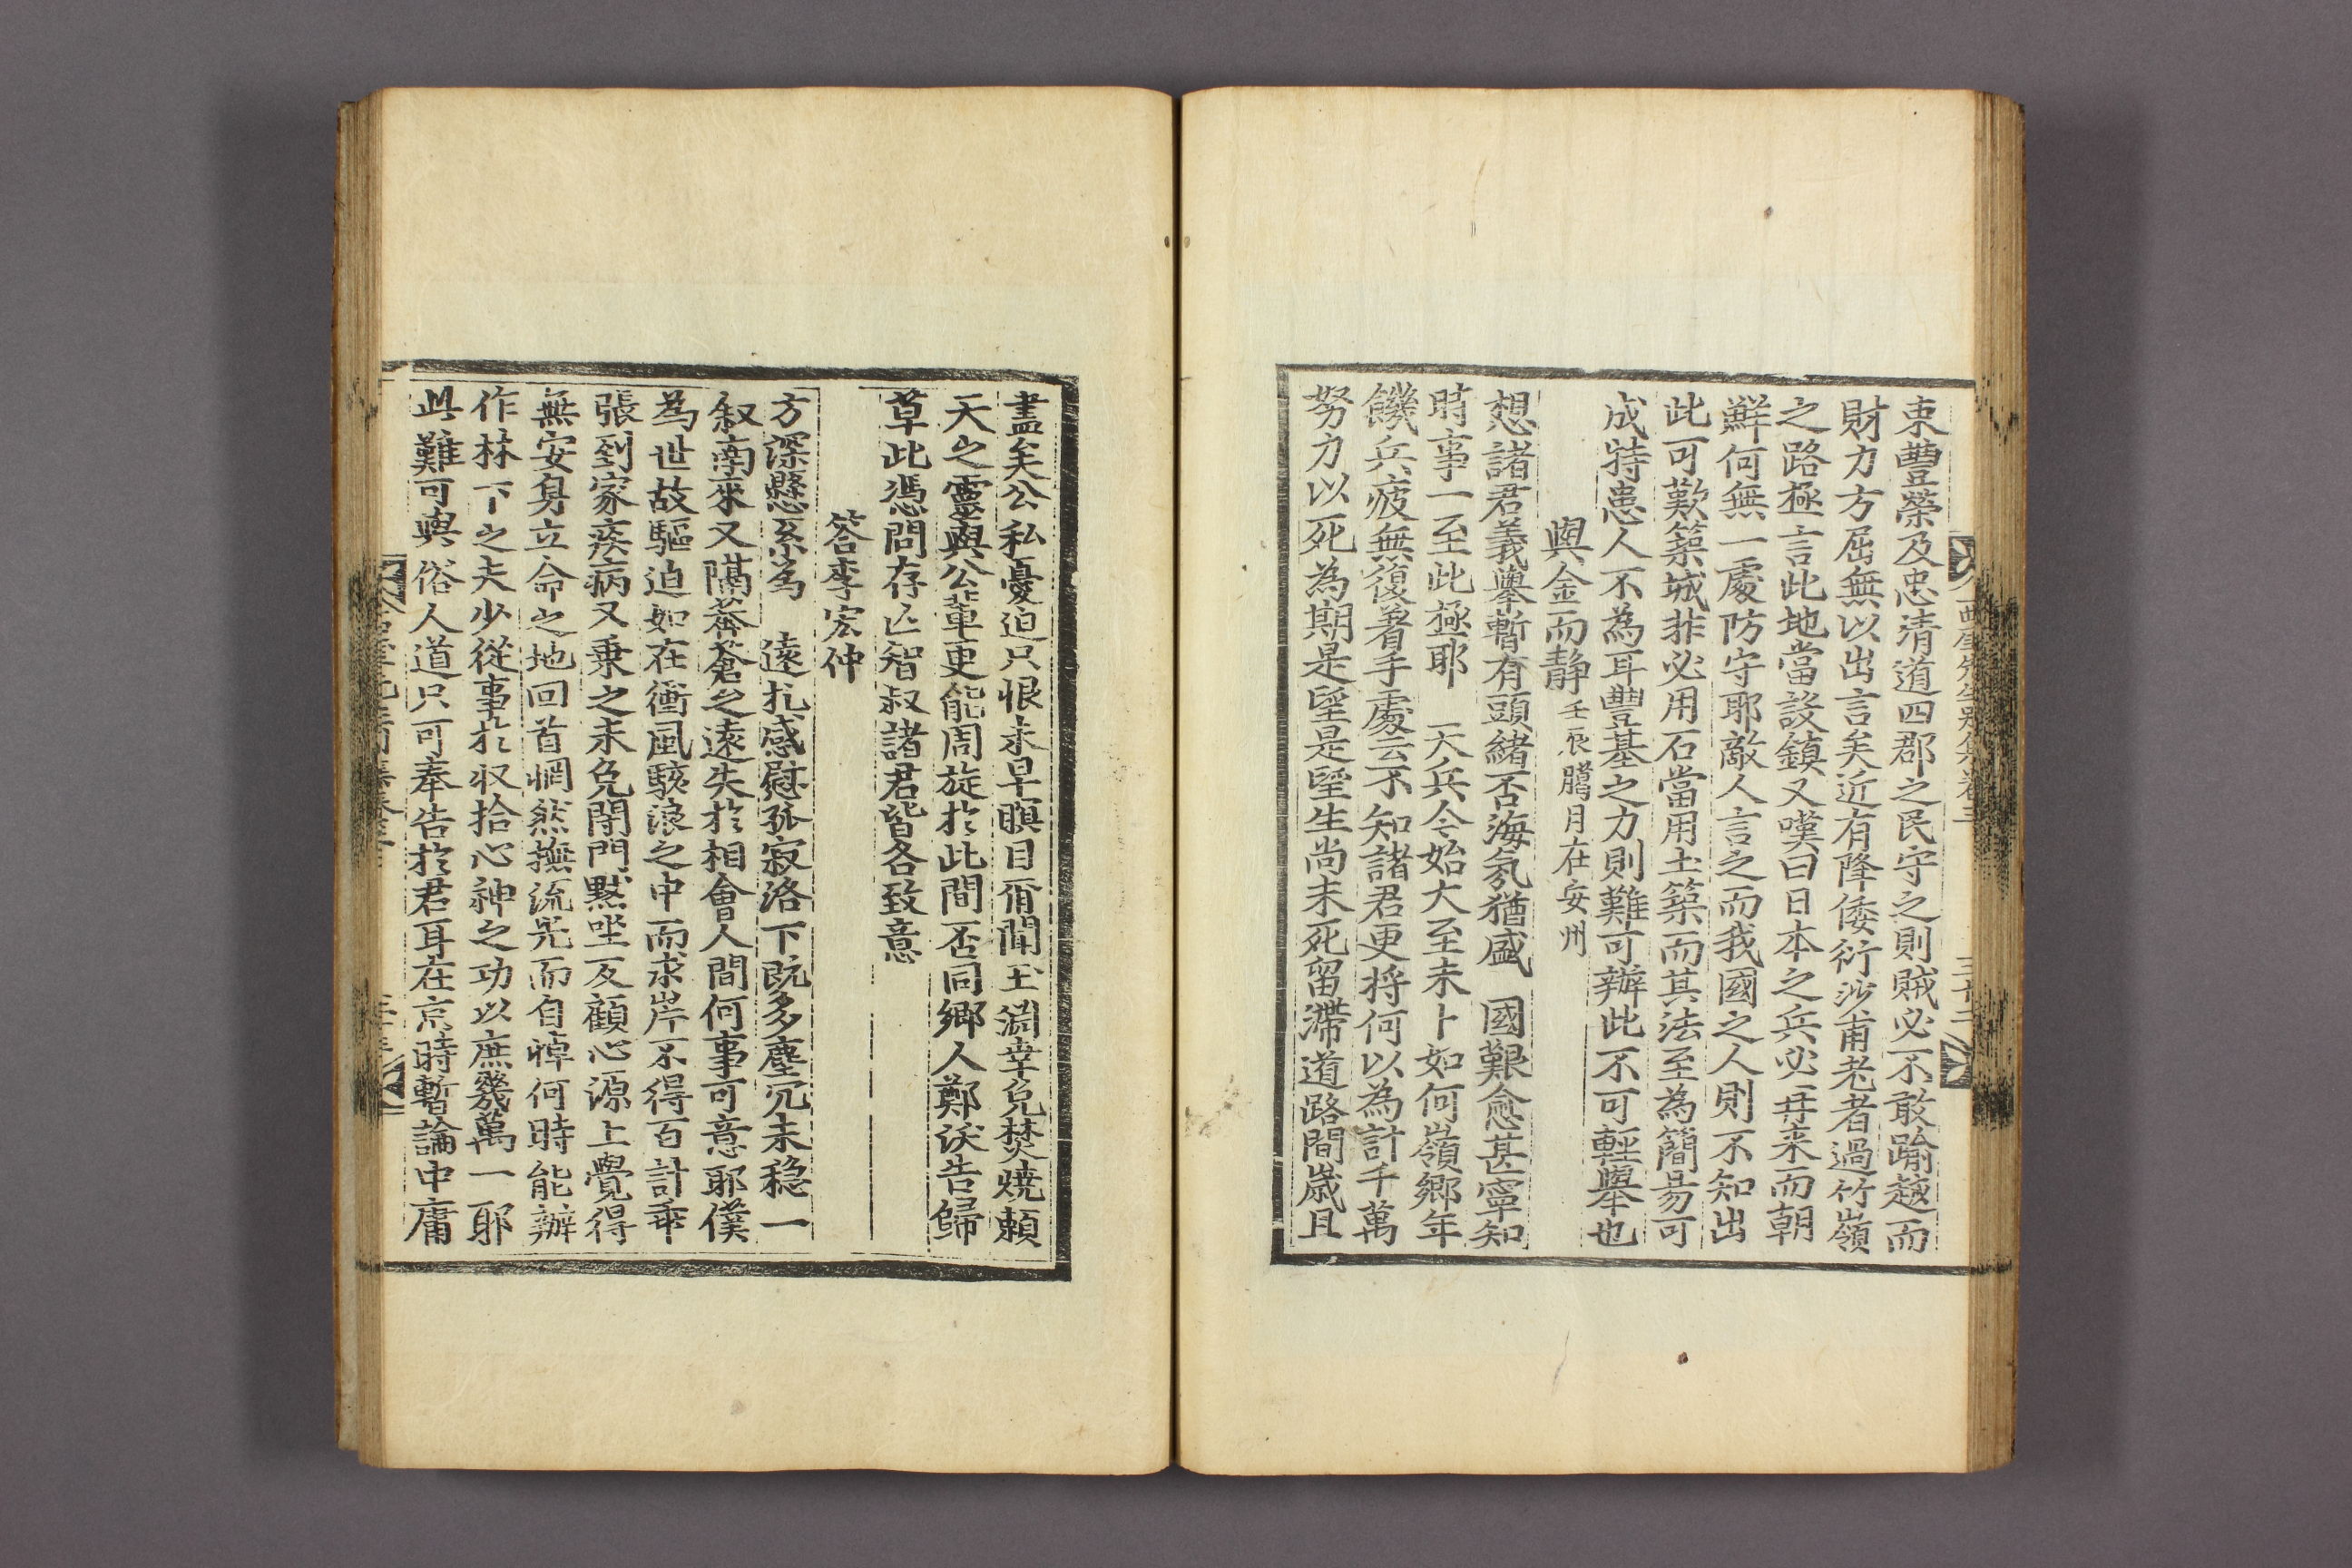 東豐榮及忠清道四郡之民守之則賊必不敢踰越而
財力方屈無以出言矣近有降倭衍沙甫老者過竹嶺
之路極言此地當設鎮又嘆曰日本之兵必再来而朝
鮮何無一處防守耶敵人言之而我國之人則不知出
此可歎築城非必用石當用土築而其法至為簡易可
成特患人不為耳豐基之力則難可辦此不可輕舉也
與金而静 壬辰臘月在安州
想諸君義舉暫有頭緒否海氛猶盛 國艱愈甚寧知
時事一至此極耶 天兵今始大至未卜如何嶺鄉年
饑兵疲無復着手處云不知諸君更将何以為計千萬
努力以死為期是望是望生尚未死留滯道路間歲且
盡矣公私憂迫只恨未早瞑目屑聞玉淵幸免焚燒頼
天之靈與公輩更能周旋於此間否同鄉人鄭沃告歸
草此憑問存亡智叔諸君皆各致意
答李宏仲
方深懸系為 遠札感慰孤寂洛下既多塵冗未穏一
叙南來又隔莽蒼之遠失於相會人間何事可意耶僕
為世故驅迫如在衝風駭浪之中而求岸不得百計乖
張到家疾病又乗之未免閉門黙坐反顧心源上覺得
無安身立命之地回首惘然撫流光而自悼何時能辦
作林下之夫少從事於收拾心神之功以庶幾萬一耶
此難可與俗人道只可奉告於君耳在京時暫論中庸